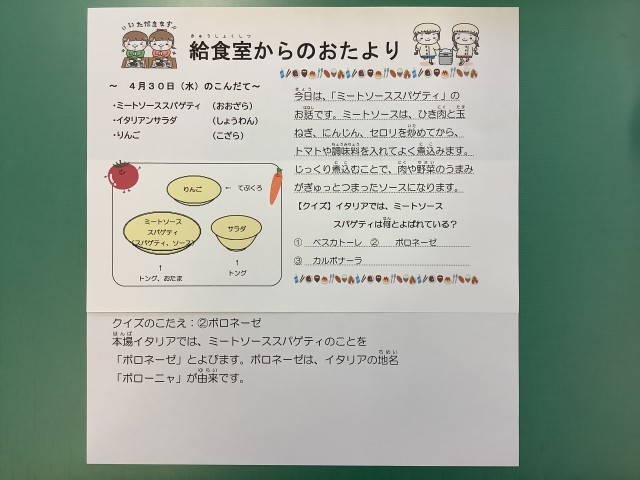 いただきます
給食室からのおたより
～ ４月３０日（水）のこんだて～
・ミートソーススパゲティ （おおざら）
・イタリアンサラダ （しょうわん）
・りんご （こざら）
りんご ← てぶくろ
ミートソース
スパゲティ
（スパゲティ、ソース）
サラダ
↑
トング、おたま
↑
トング
今日は、「ミートソーススパゲティ」の
お話です。ミートソースは、ひき肉と玉
ねぎ、にんじん、セロリを炒めてから、
トマトや調味料を入れてよく煮込みます。
じっくり煮込むことで、肉や野菜のうまみ
がぎゅっとつまったソースになります。
【クイズ】イタリアでは、ミートソース
スパゲティは何とよばれている？
① ペスカトーレ ② ボロネーゼ
③ カルボナーラ
クイズのこたえ：②ボロネーゼ
本場イタリアでは、ミートソーススパゲティのことを
「ボロネーゼ」とよびます。ボロネーゼは、イタリアの地名
「ボローニャ」が由来です。